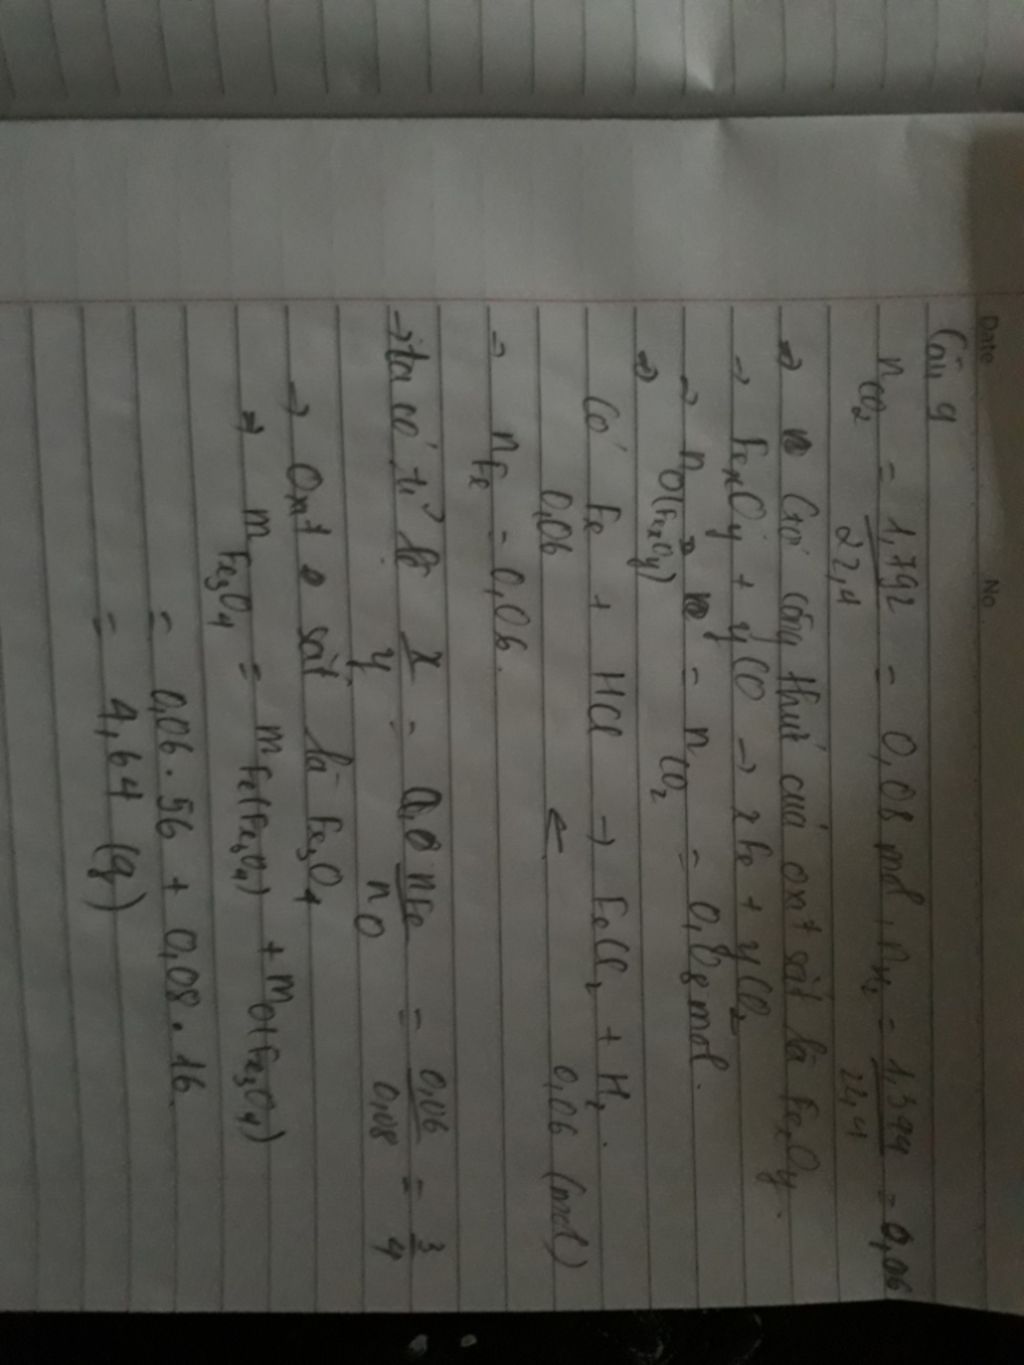 Date
No.
Câu 9
nCO2 = 1,792/22,4 = 0,08 mol, nH2 = 1,344/22,4 = 0,06
→ Gọi công thức của oxit sắt là FexOy.
→ FexOy + yCO → xFe + yCO2
→ nO(FexOy) = nCO2 = 0,08 mol.
→
Có Fe + HCl → FeCl2 + H2.
0,06 ← 0,06 (mol)
→ nFe = 0,06.
→ ta có tỉ lệ x/y = nFe/nO = 0,06/0,08 = 3/4
→ Oxit sắt là Fe3O4
→ mFe3O4 = mFe(Fe3O4) + mO(Fe3O4)
= 0,06.56 + 0,08.16.
= 4,64 (g)